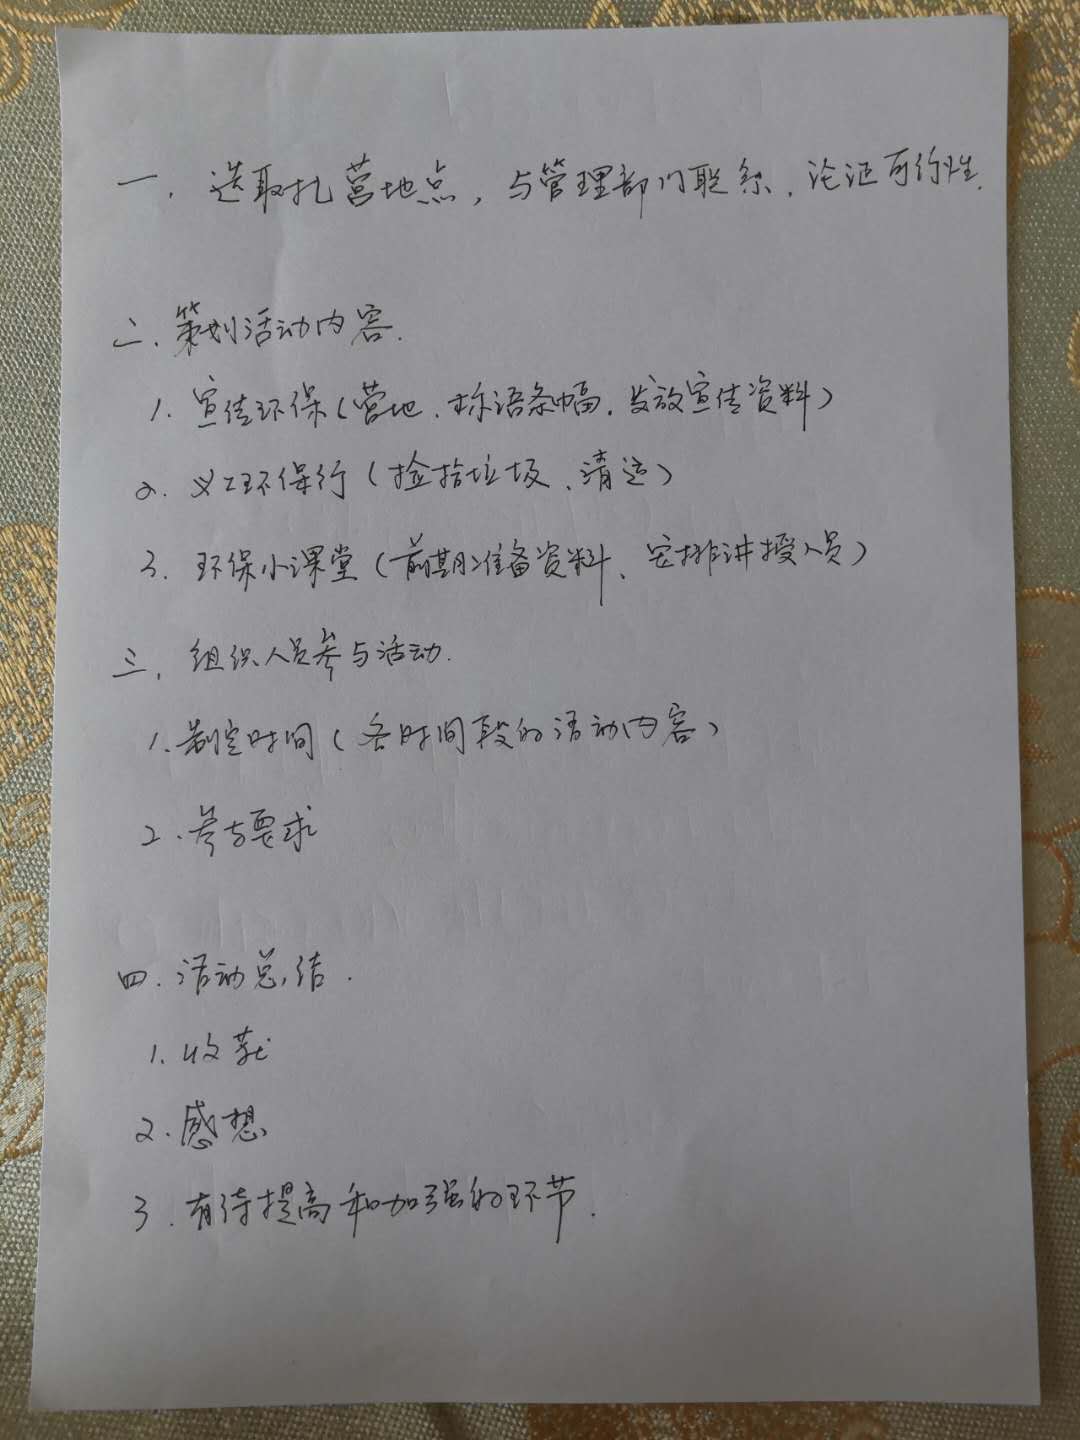 一、选取扎营地点，与管理部门联系，论证可行性.
二、策划活动内容.
1. 宣传环保（营地、标语条幅，发放宣传资料）
2. 义工环保行（捡拾垃圾、清运）
3. 环保小课堂（前期准备资料、安排讲授人员）
三、组织人员参与活动.
1. 制定时间（各时间段的活动内容）
2. 参与要求
四、活动总结.
1. 收获
2. 感想
3. 有待提高和加强的环节.